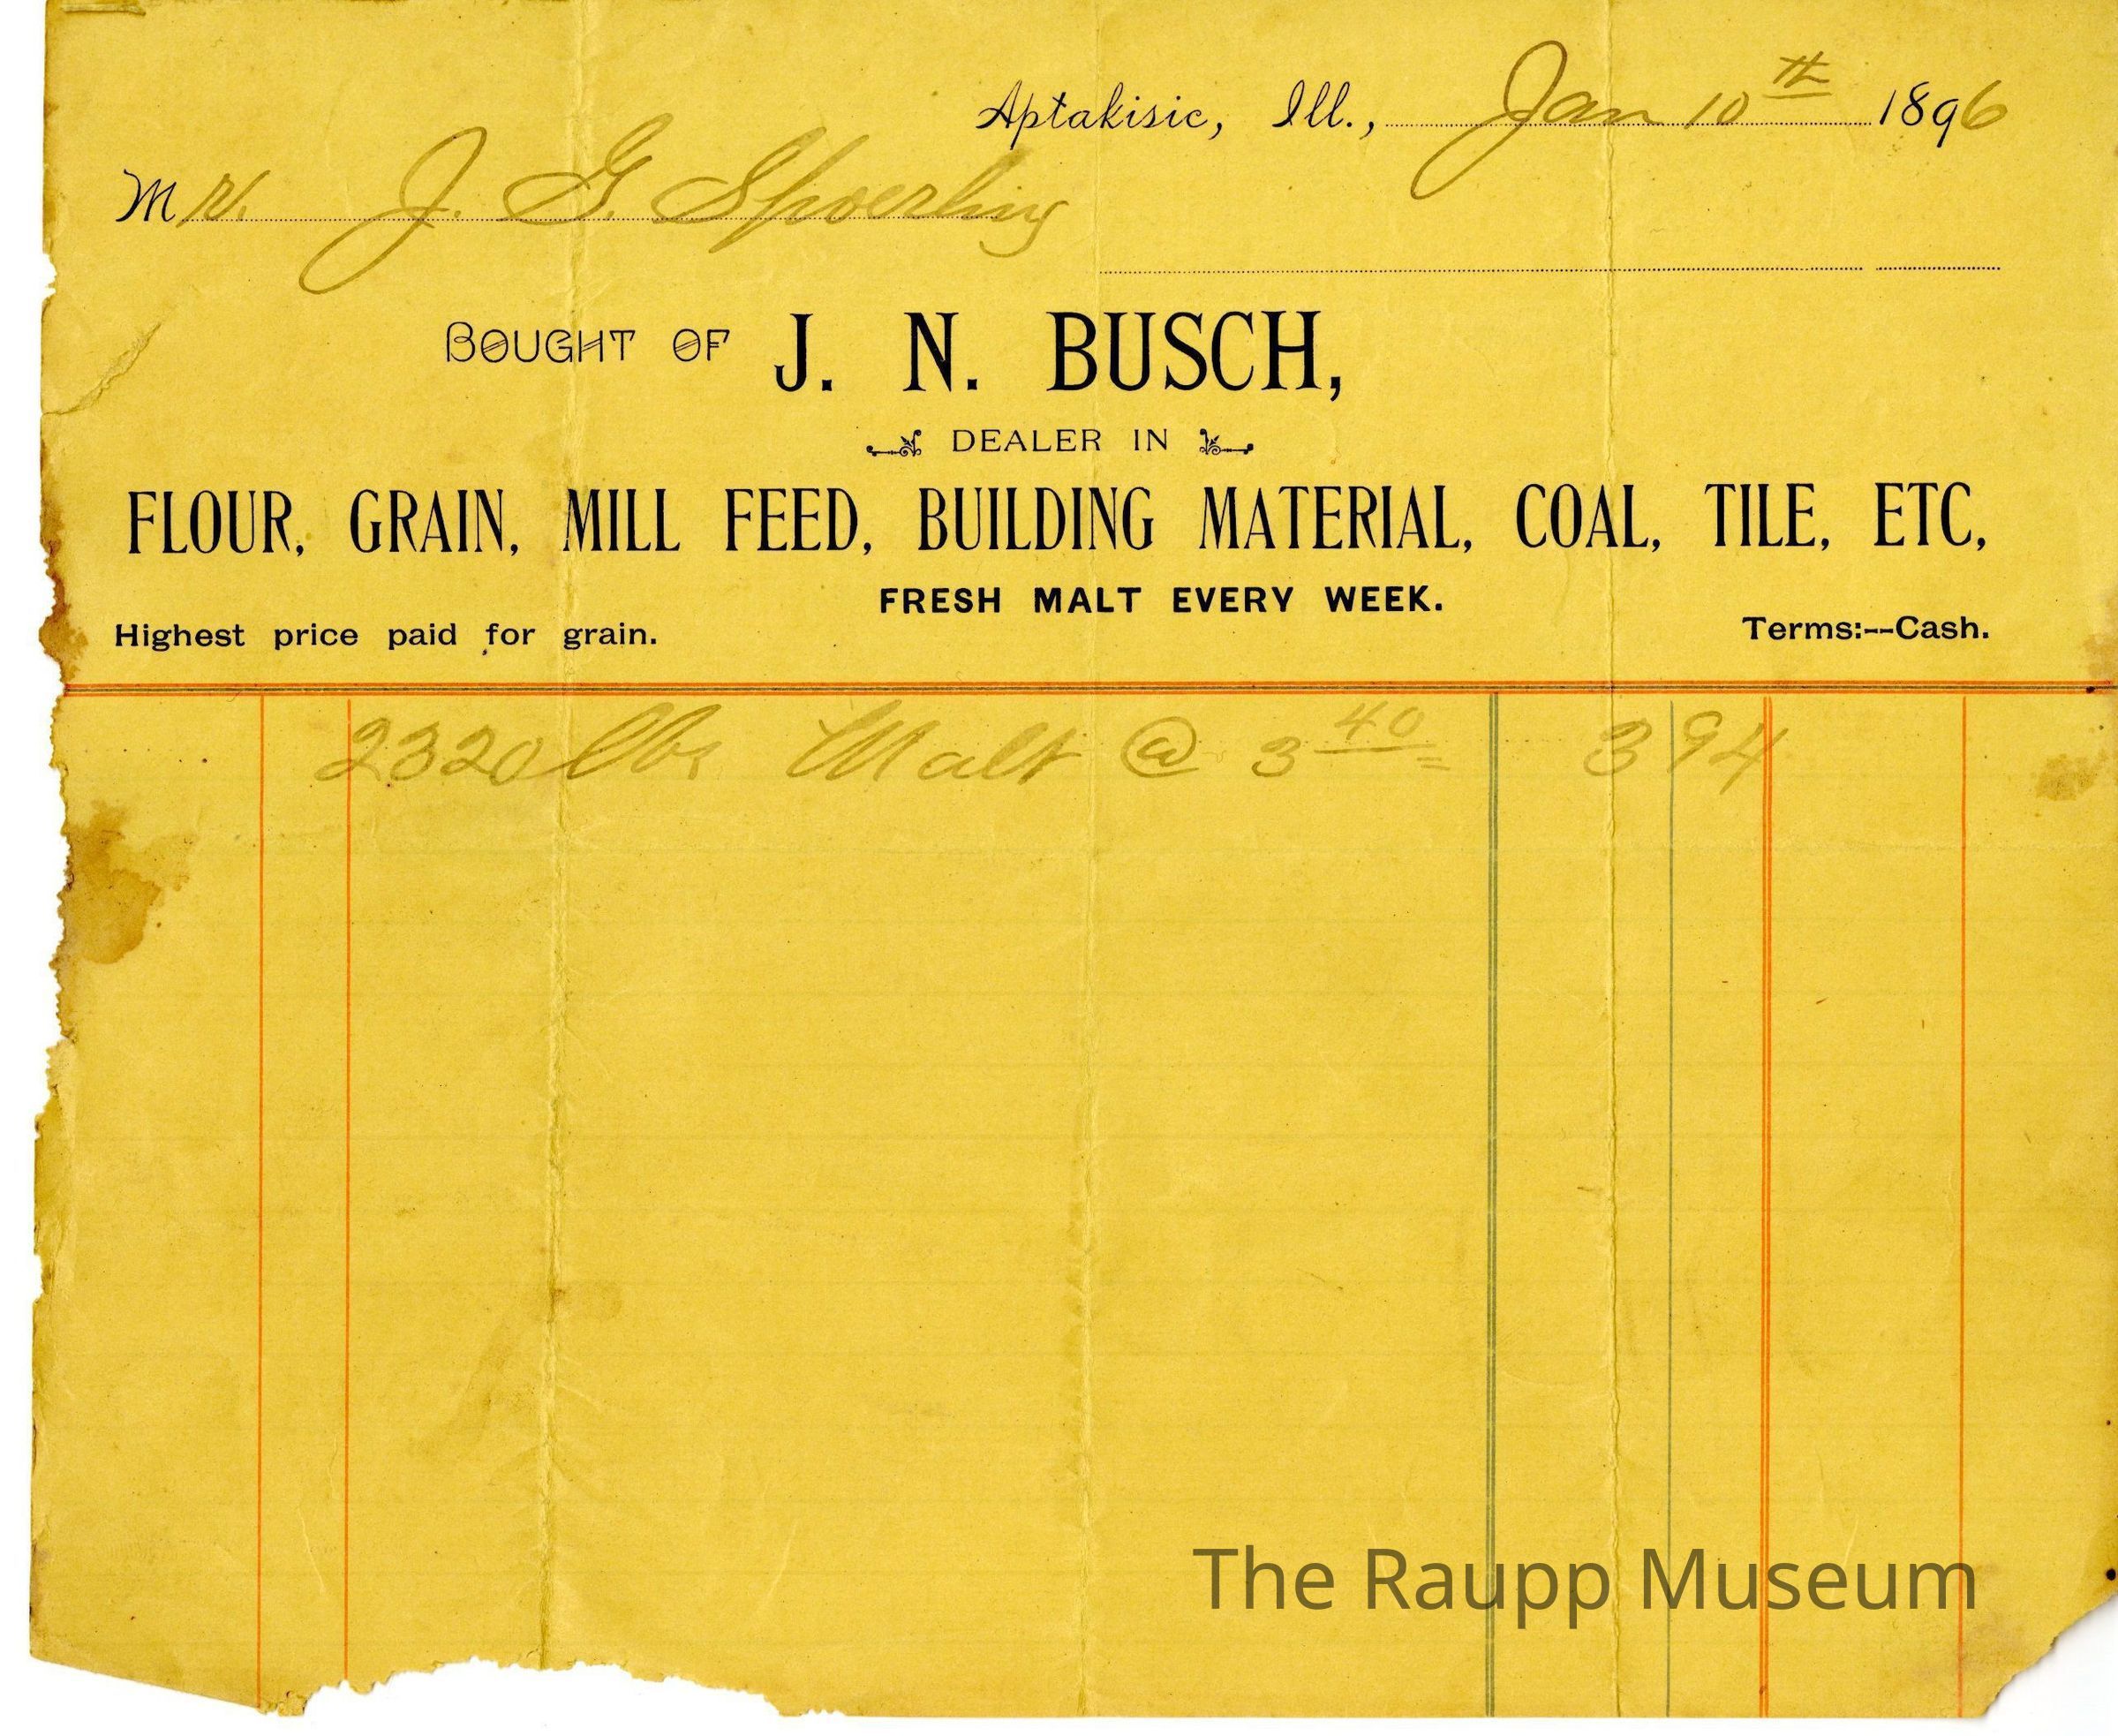 Aptakisic, Ill., Jan 10th 1896
Mr. J. G. Spoerling
BOUGHT OF J. N. BUSCH,
DEALER IN
FLOUR, GRAIN, MILL FEED, BUILDING MATERIAL, COAL, TILE, ETC,
FRESH MALT EVERY WEEK.
Highest price paid for grain. Terms:--Cash.
2320 lbs Malt @ 3 40 = 3 94
The Raupp Museum